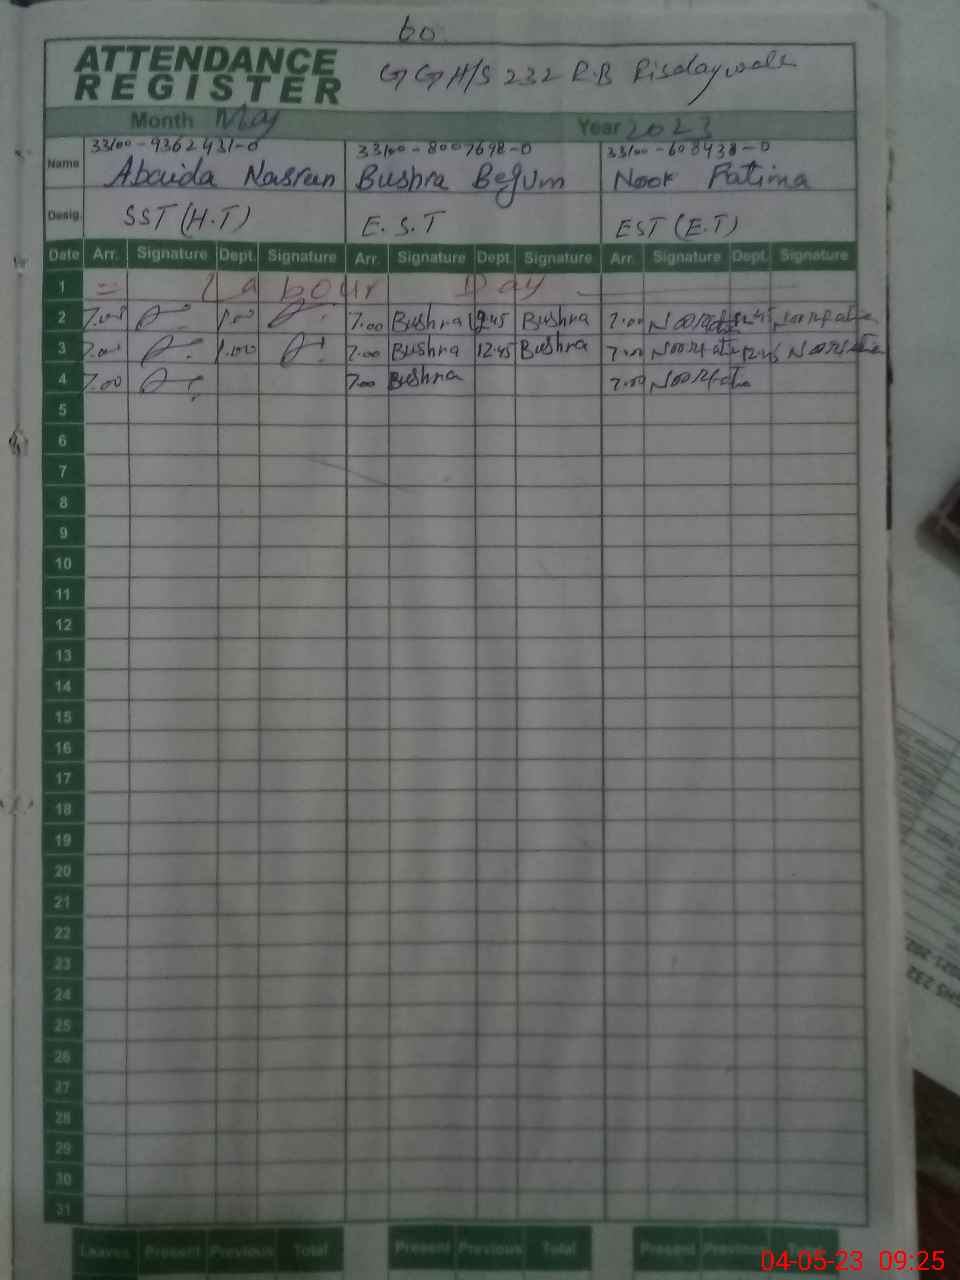 60
ATTENDANCE REGISTER
GGH/S 232 R.B Risalaywala
Month May Year 2023
33100-9362431-0 33100-8007698-0 33100-608938-0
Name Abaida Nasreen Bushra Begum Noor Fatima
Desig. SST (H.T) E.S.T EST (E.T)
Date Arr. Signature Dept. Signature Arr. Signature Dept. Signature Arr. Signature Dept. Signature
1 Labour Day
2 7.00 1.00 7.00 Bushra 12.45 Bushra 7.00 Noor Fatima 12.45 Noor Fatima
3 7.00 1.00 7.00 Bushra 12.45 Bushra 7.00 Noor Fatima 12.45 Noor Fatima
4 7.00 7.00 Bushra 7.00 Noor Fatima
5
6
7
8
9
10
11
12
13
14
15
16
17
18
19
20
21
22
23
24
25
26
27
28
29
30
31
Leaves Present Previous Total Present Previous Total Present Previous Total
GHS 232
04-05-23 09:25